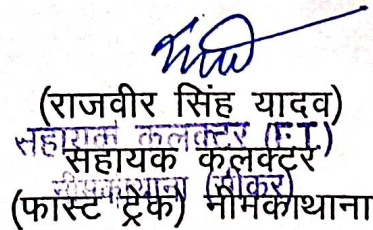 (राजवीर सिंह यादव)
सहायक कलक्टर (F.T.)
सहायक कलक्टर
नीमकाथाना (सीकर)
(फास्ट ट्रेक) नीमकाथाना